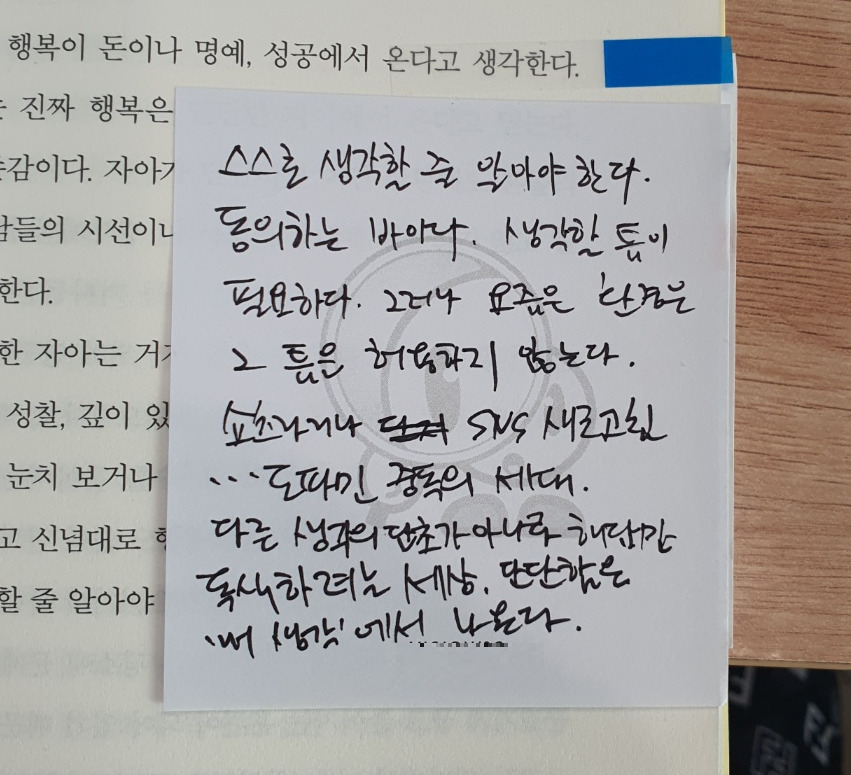 행복이 돈이나 명예, 성공에서 온다고 생각한다.
진짜 행복은
감이다. 자아
들의 시선이나
한다.
한 자아는
성찰, 깊이 있
눈치 보거나
고 신념대로
할 줄 알아야
스스로 생각할 줄 알아야 한다.
동의하는 바이다. 생각할 틈이
필요하다. 그러나 요즘은 환경은
그 틈을 허용하지 않는다.
쇼츠라거나 SNS 새로고침
... 도파민 중독의 세대.
다른 생각의 단초가 아니라 해답만
독식하려는 세상. 단단함은
'내 생각'에서 나온다.